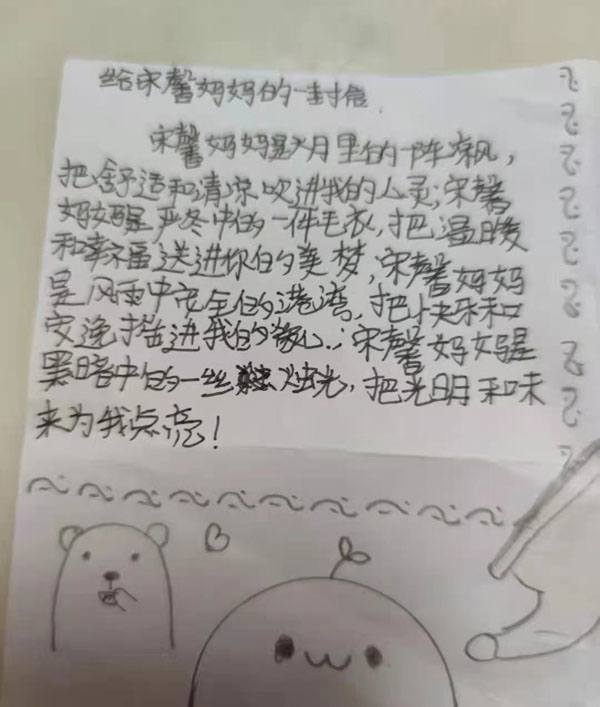 给宋馨妈妈的一封信
宋馨妈妈是六月里的一阵凉风，
把舒适和清凉吹进我的心灵；宋馨
妈妈是严冬中的一件毛衣，把温暖
和幸福送进你的美梦；宋馨妈妈
是风雨中安全的港湾，把快乐和
安逸描进我的；宋馨妈妈是
黑暗中的一丝烛光，把光明和味
来为我点亮！